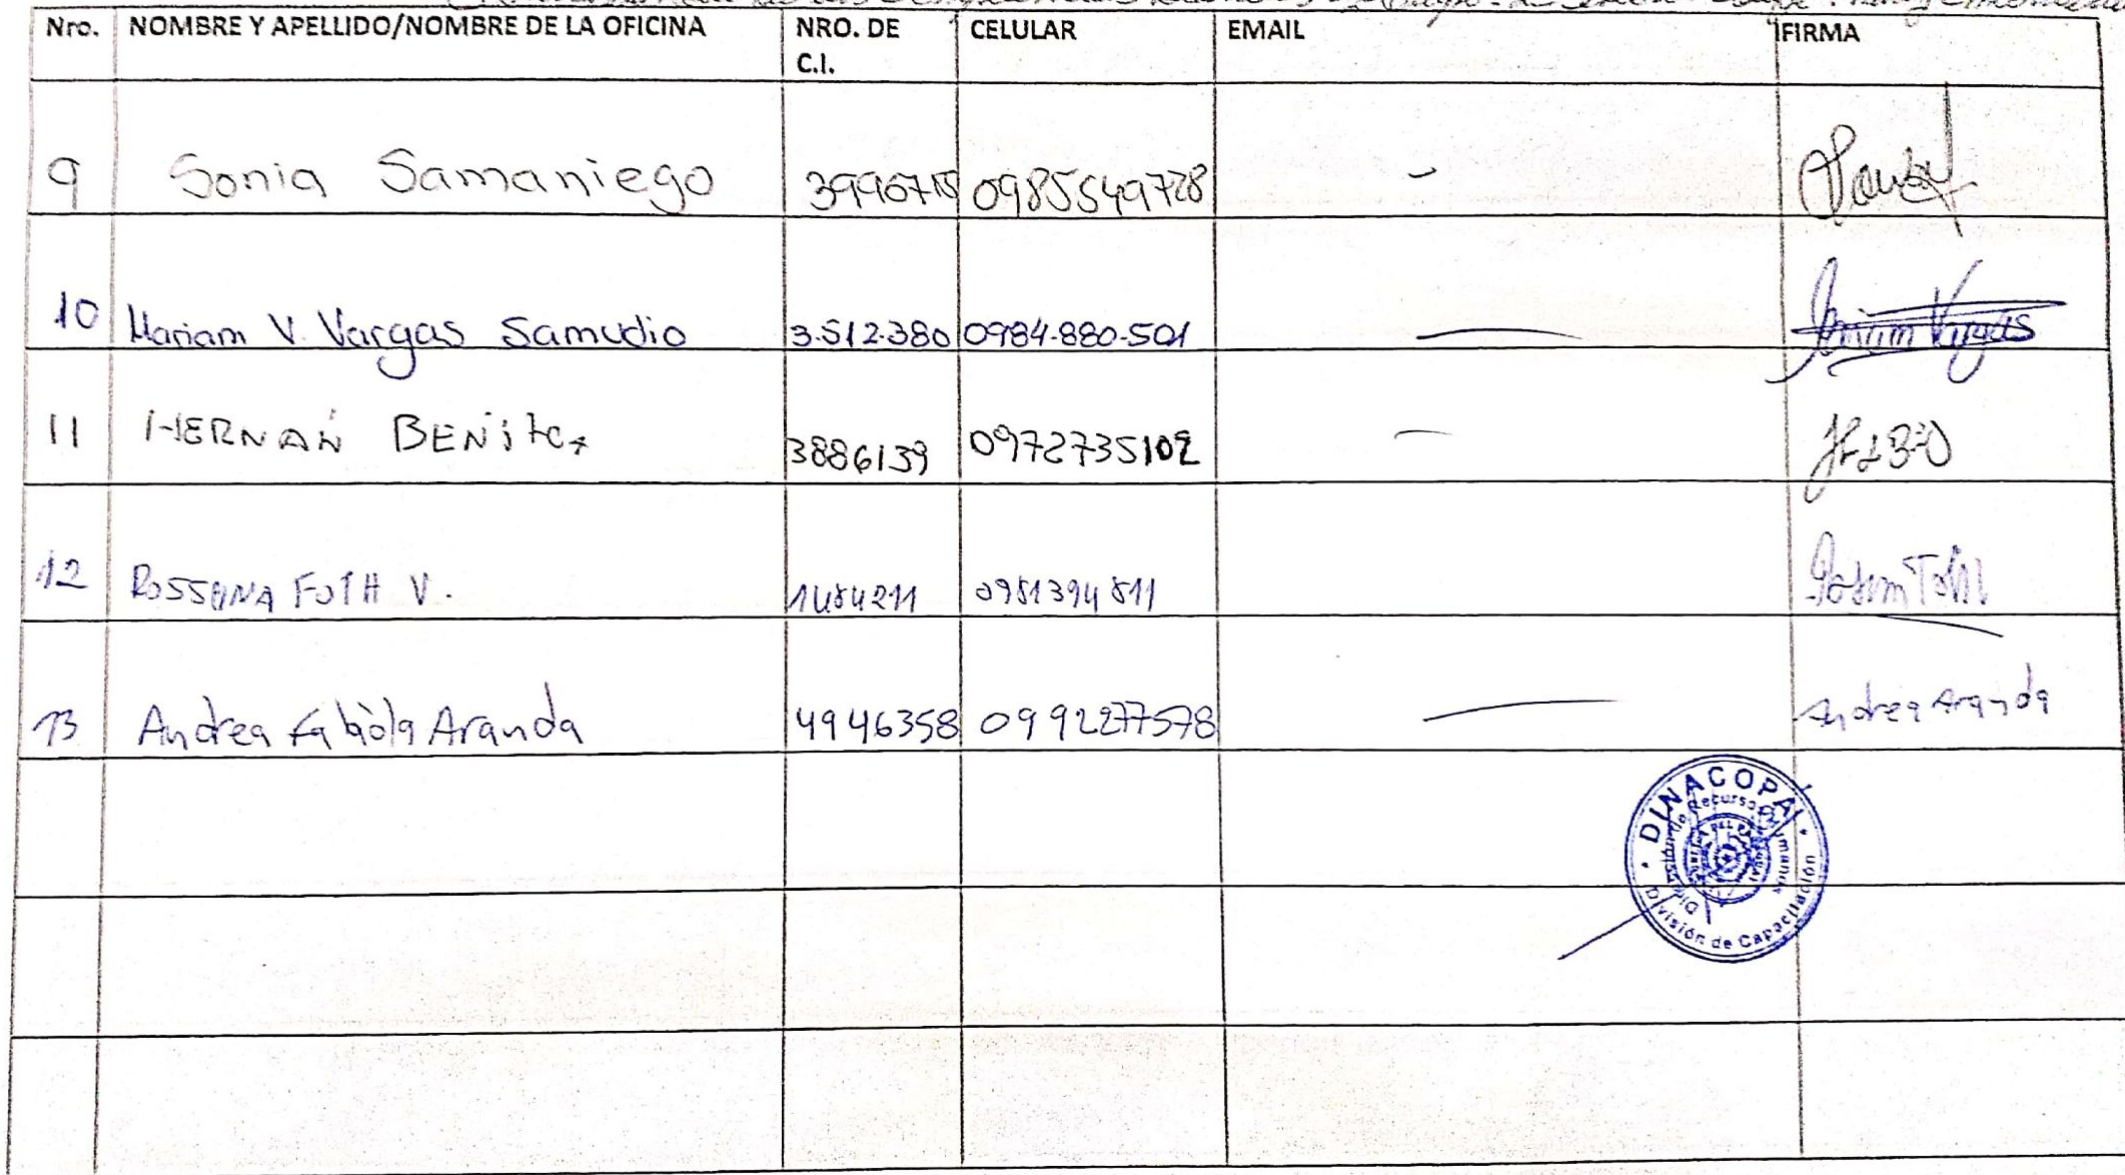 Nro. NOMBRE Y APELLIDO/NOMBRE DE LA OFICINA NRO. DE C.I. CELULAR EMAIL FIRMA
9 Sonia Samaniego 3996715 0985549728 -
10 Mariam V. Vargas Samudio 3.512.380 0984-880-501 — Mariam Vargas
11 HERNÁN BENíTEz 3886139 0972735102 -
12 ROSSANA V. 1484211 0981394811
13 Andrea Fabiola Aranda 4946358 0992277578 — Andrea Aranda
DINACOPA
Dirección de Recursos Humanos
División de Capacitación